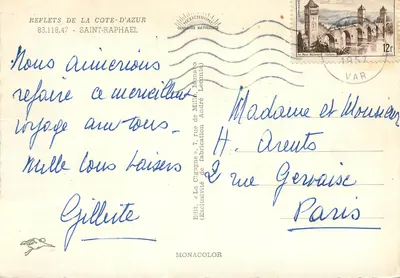 REFLETS DE LA COTE-D'AZUR
83.118.47 - SAINT-RAPHAEL
Nous aimerions
refaire ce merveilleux
voyage avec vous.
Mille bons baisers
Gillette
Edit. « La Cigogne », 7, rue de Millo, Monaco
(Exclusivité de fabrication André Leconte)
12F
1957
VAR
Madame et Monsieur
H. Arents
2 rue Gervaise
Paris
MONACOLOR